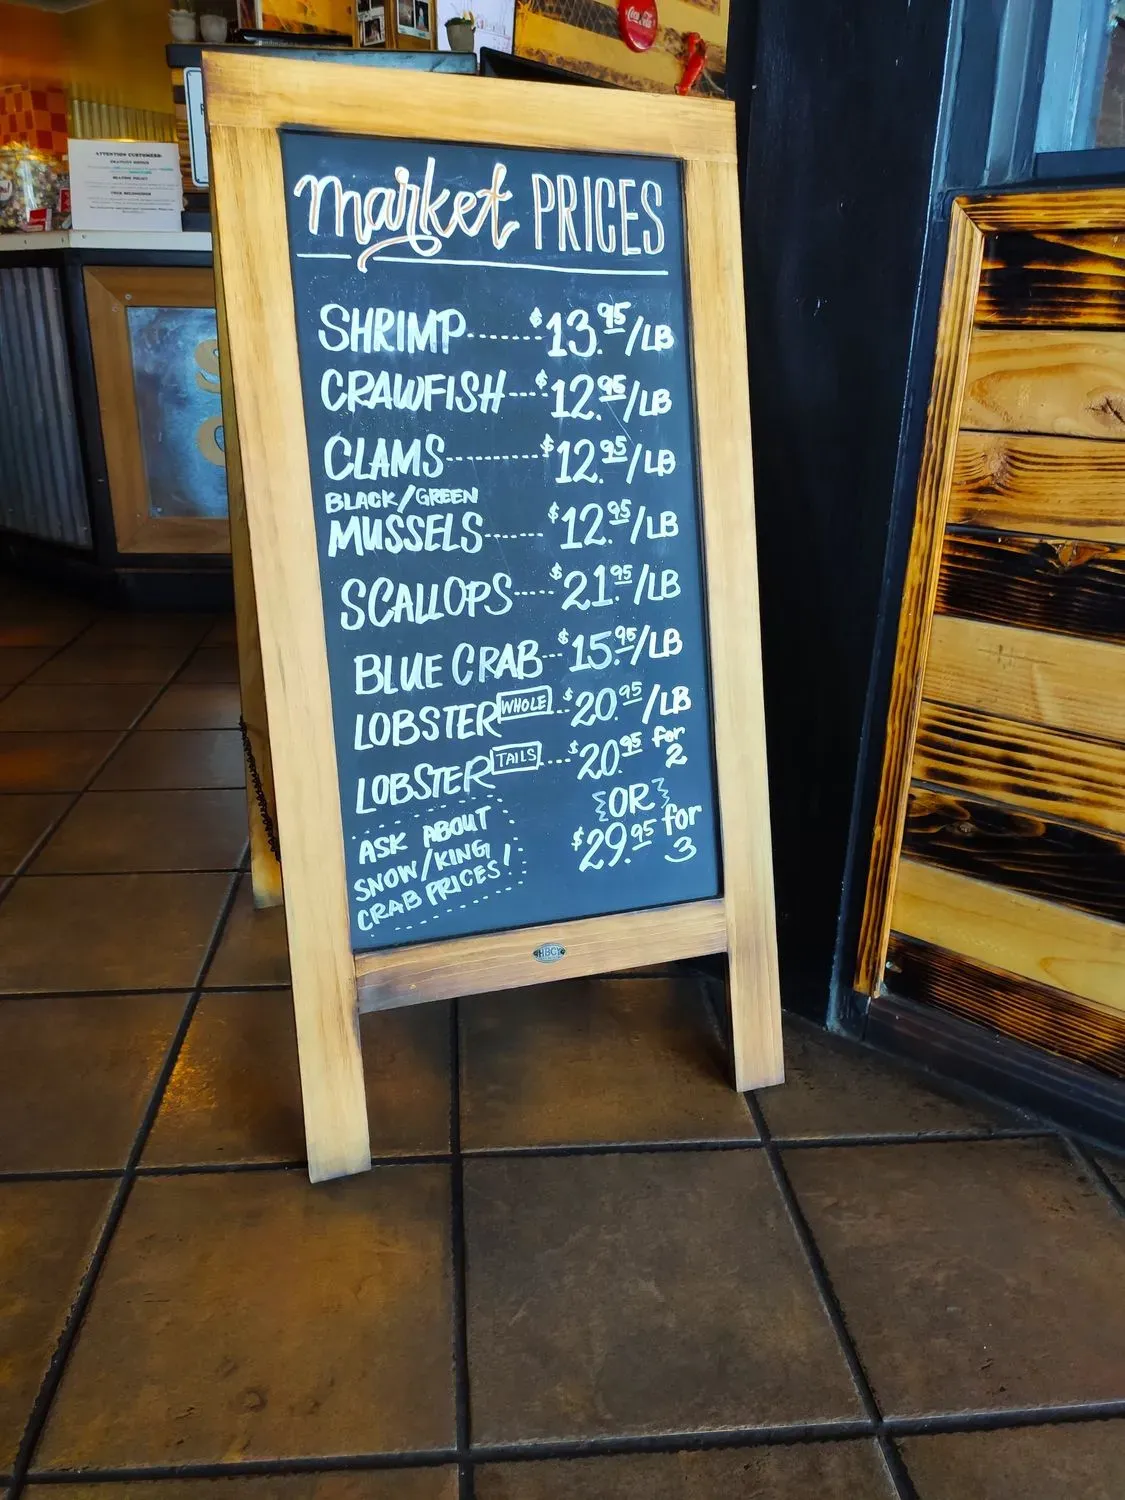 Coca-Cola
ATTENTION CUSTOMERS:
market PRICES
SHRIMP.......$13.95/LB
CRAWFISH....$12.95/LB
CLAMS..........$12.95/LB
BLACK/GREEN
MUSSELS.......$12.95/LB
SCALLOPS.....$21.95/LB
BLUE CRAB...$15.95/LB
LOBSTER WHOLE..$20.95/LB
LOBSTER TAILS....$20.95 for 2
{OR}
$29.95 for 3
ASK ABOUT
SNOW/KING
CRAB PRICES!
HBCY